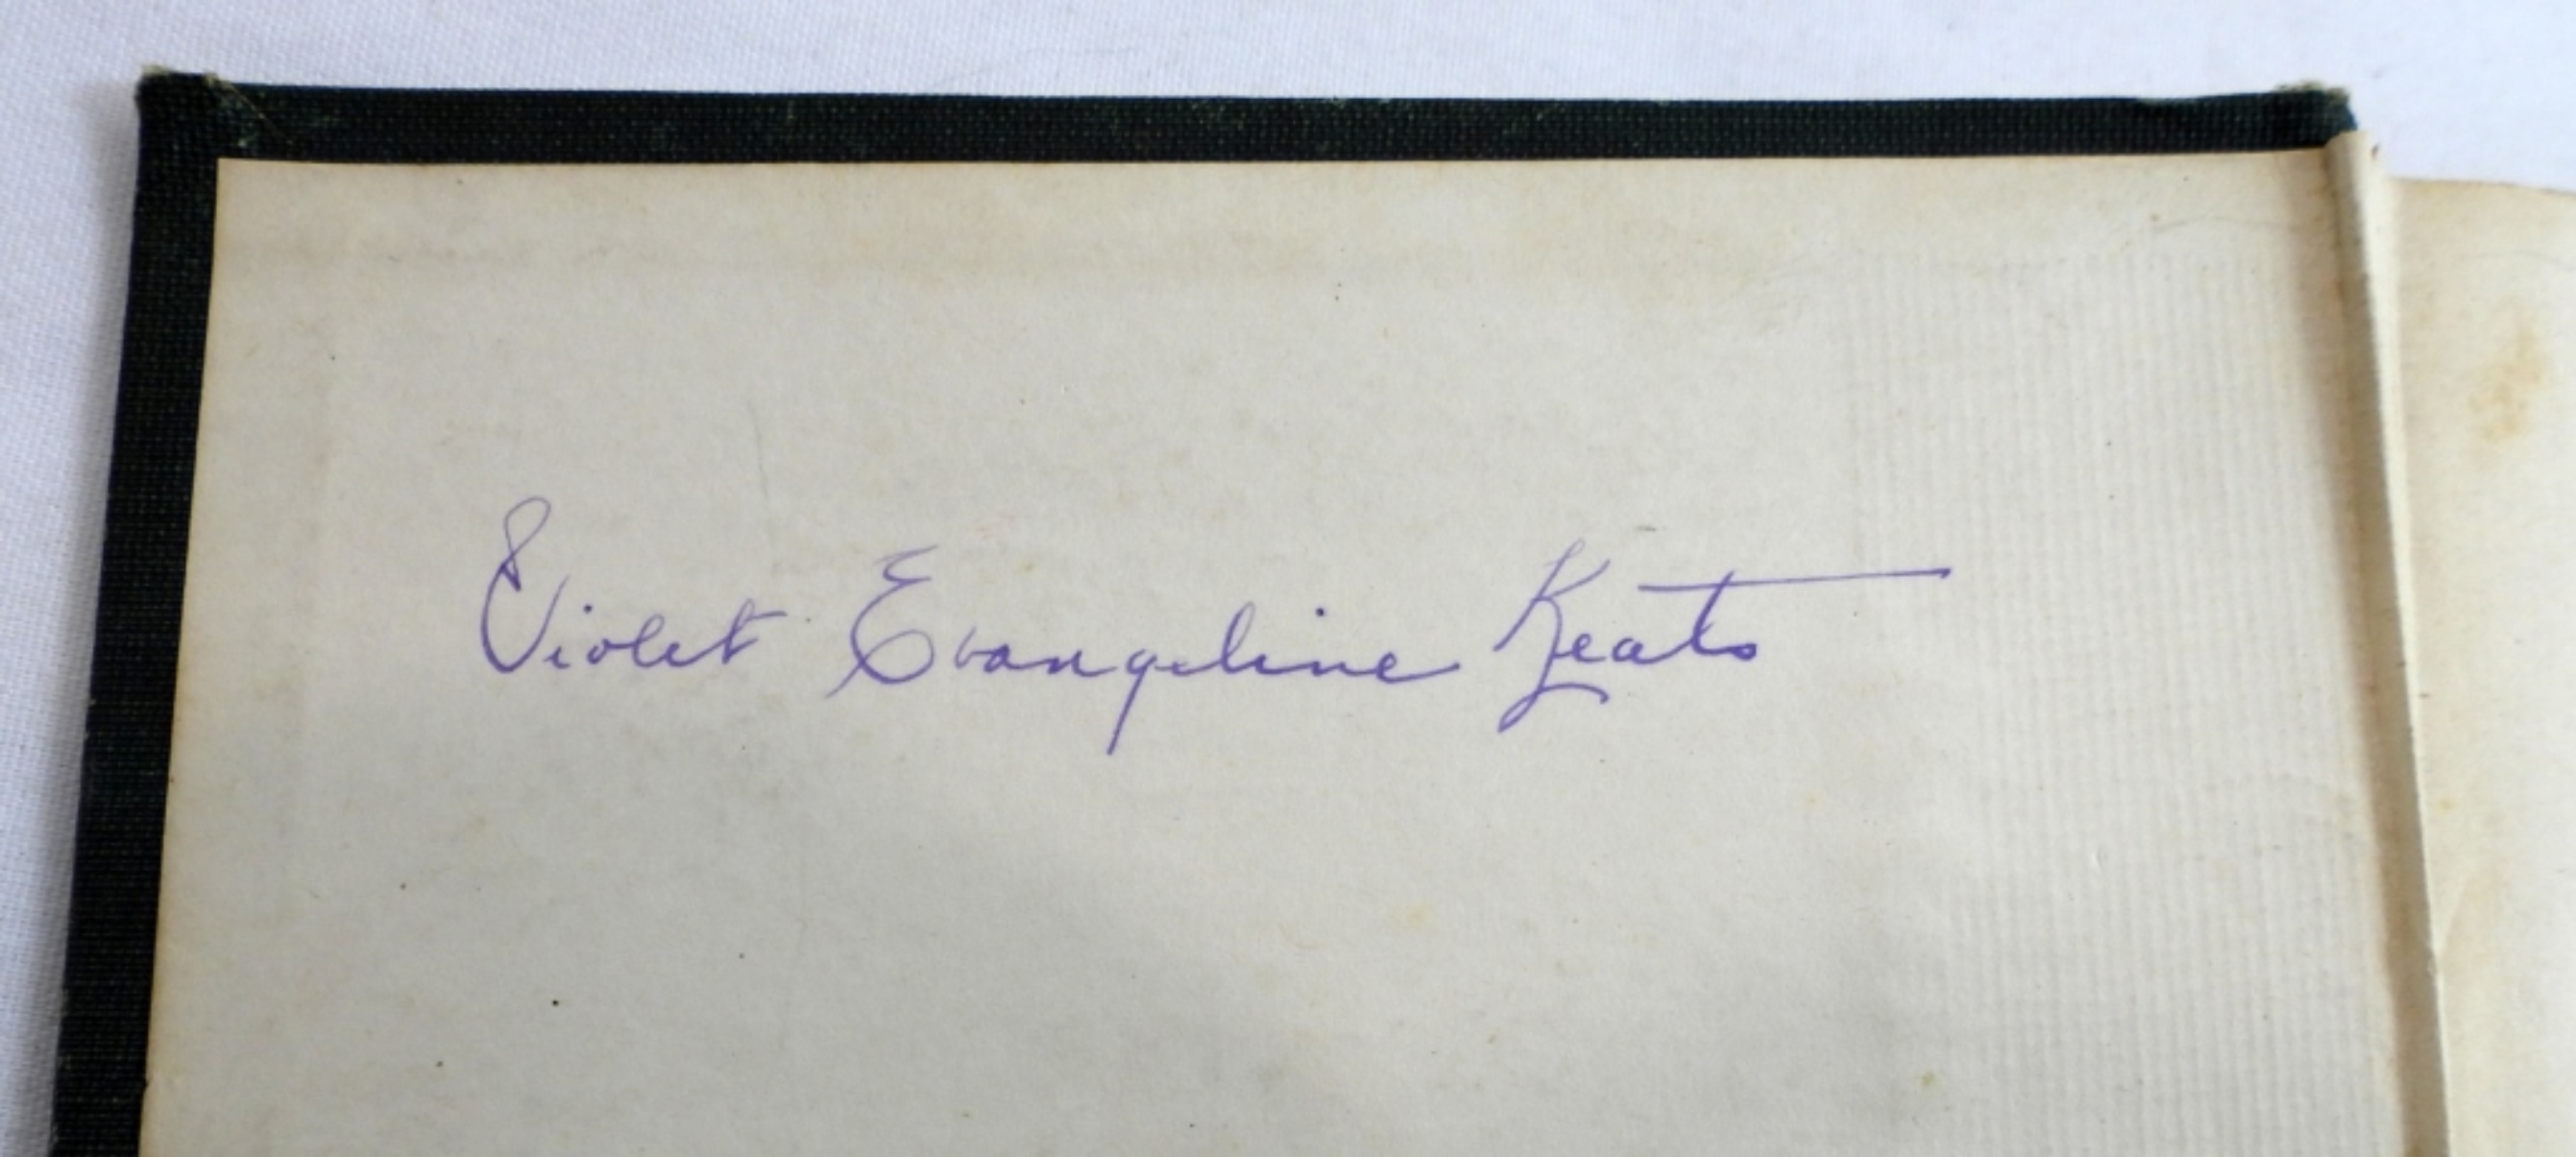 Violet Evangeline Keats